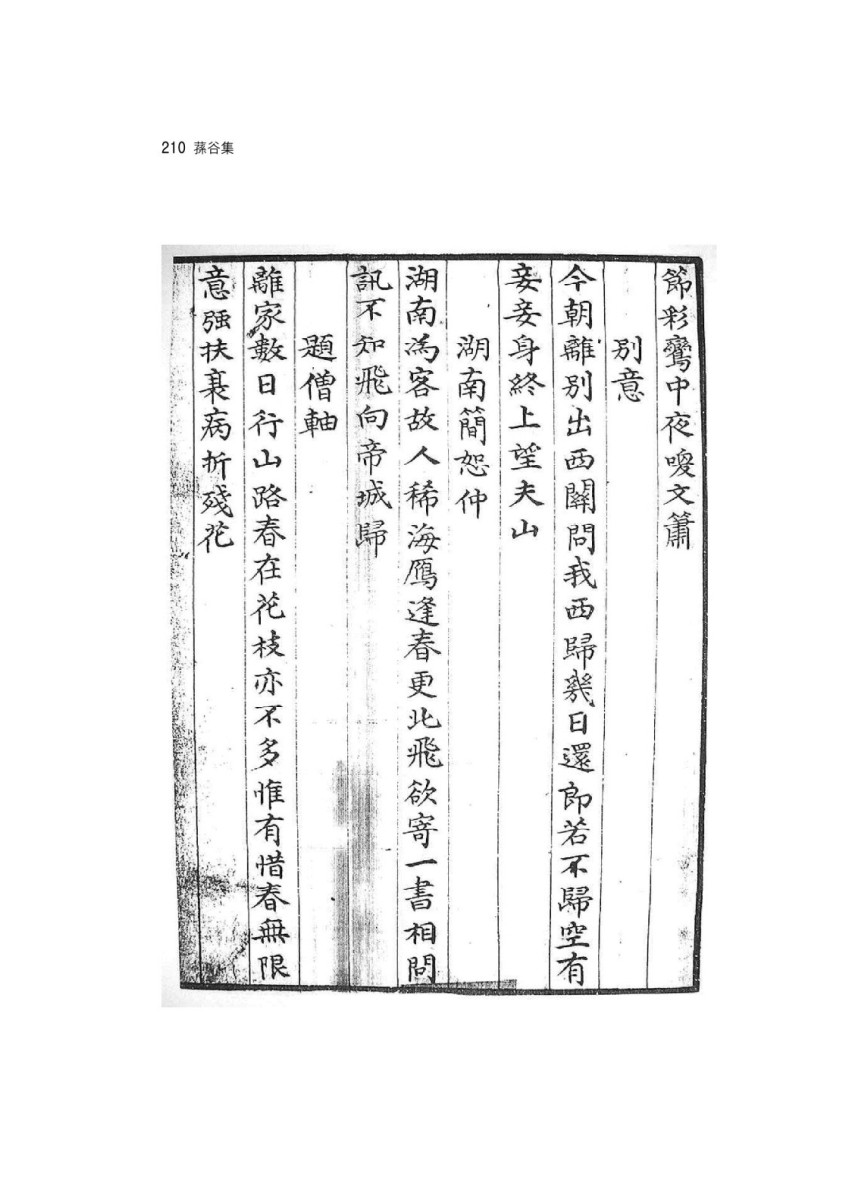 210 蓀谷集
節彩鸞中夜嗳文簫
別意
今朝離別出西關問我西歸幾日還郎若不歸空有
妾妾身終上望夫山
湖南簡恕仲
湖南爲客故人稀海鴈逢春更北飛欲寄一書相問
訊不知飛向帝城歸
題僧軸
離家數日行山路春在花枝亦不多惟有惜春無限
意强扶衰病折殘花